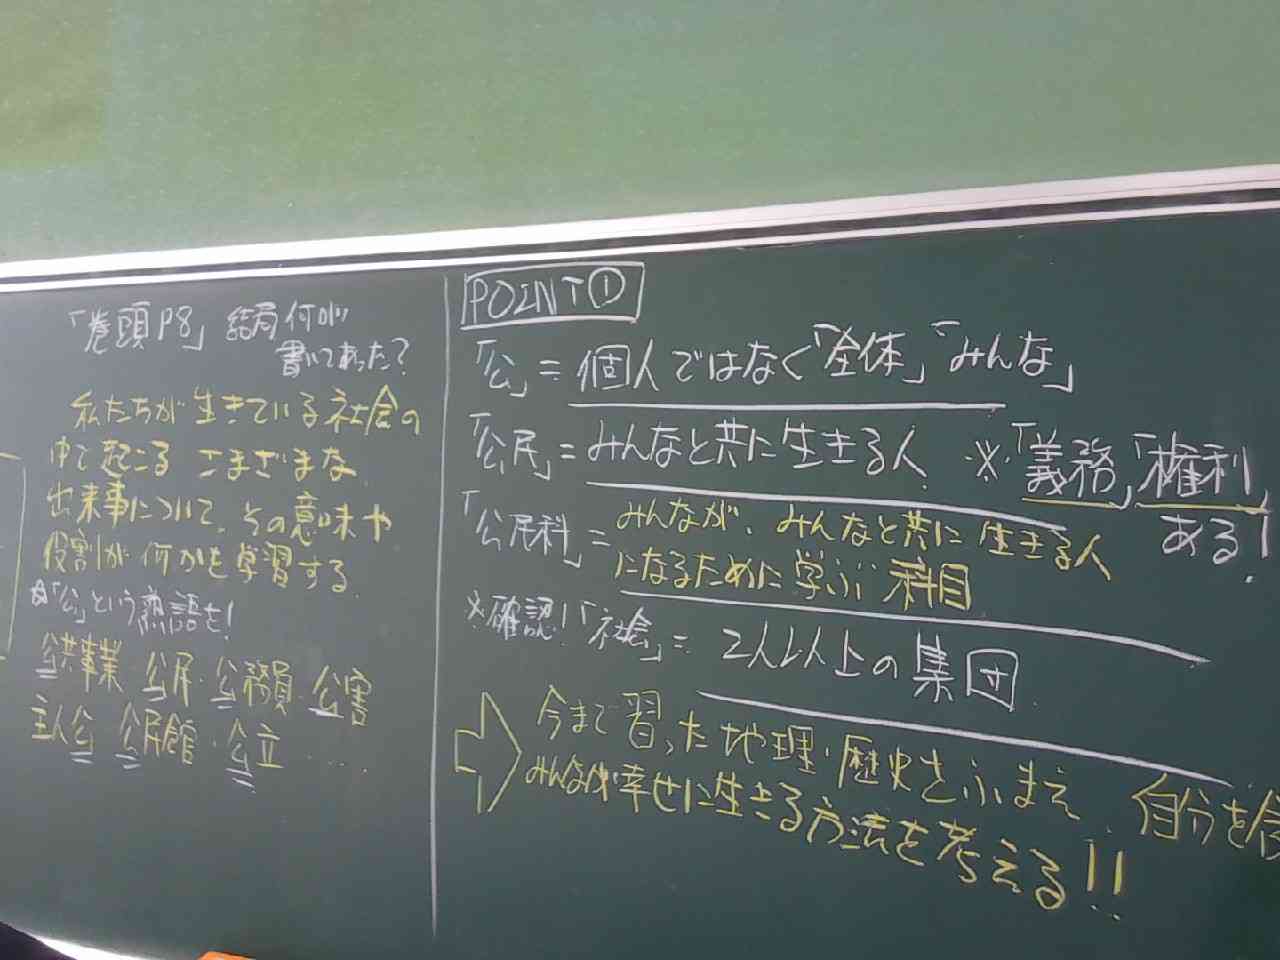 「巻頭P8」結局何が
書いてあった？
私たちが生きている社会の
中で起こるさまざまな
出来事について、その意味や
役割が何かを学習する
☆「公」という熟語を！
公共事業・公民・公務員・公害
主人公・公民館・公立……
POINT①
「公」＝個人ではなく「全体」「みんな」
「公民」＝みんなと共に生きる人 ※「義務」「権利」
ある！
「公民科」＝みんなが、みんなと共に生きる人
になるために学ぶ科目
※確認！「社会」＝2人以上の集団
今まで習った地理・歴史をふまえ 自分を含
みんなが幸せに生きる方法を考える！！